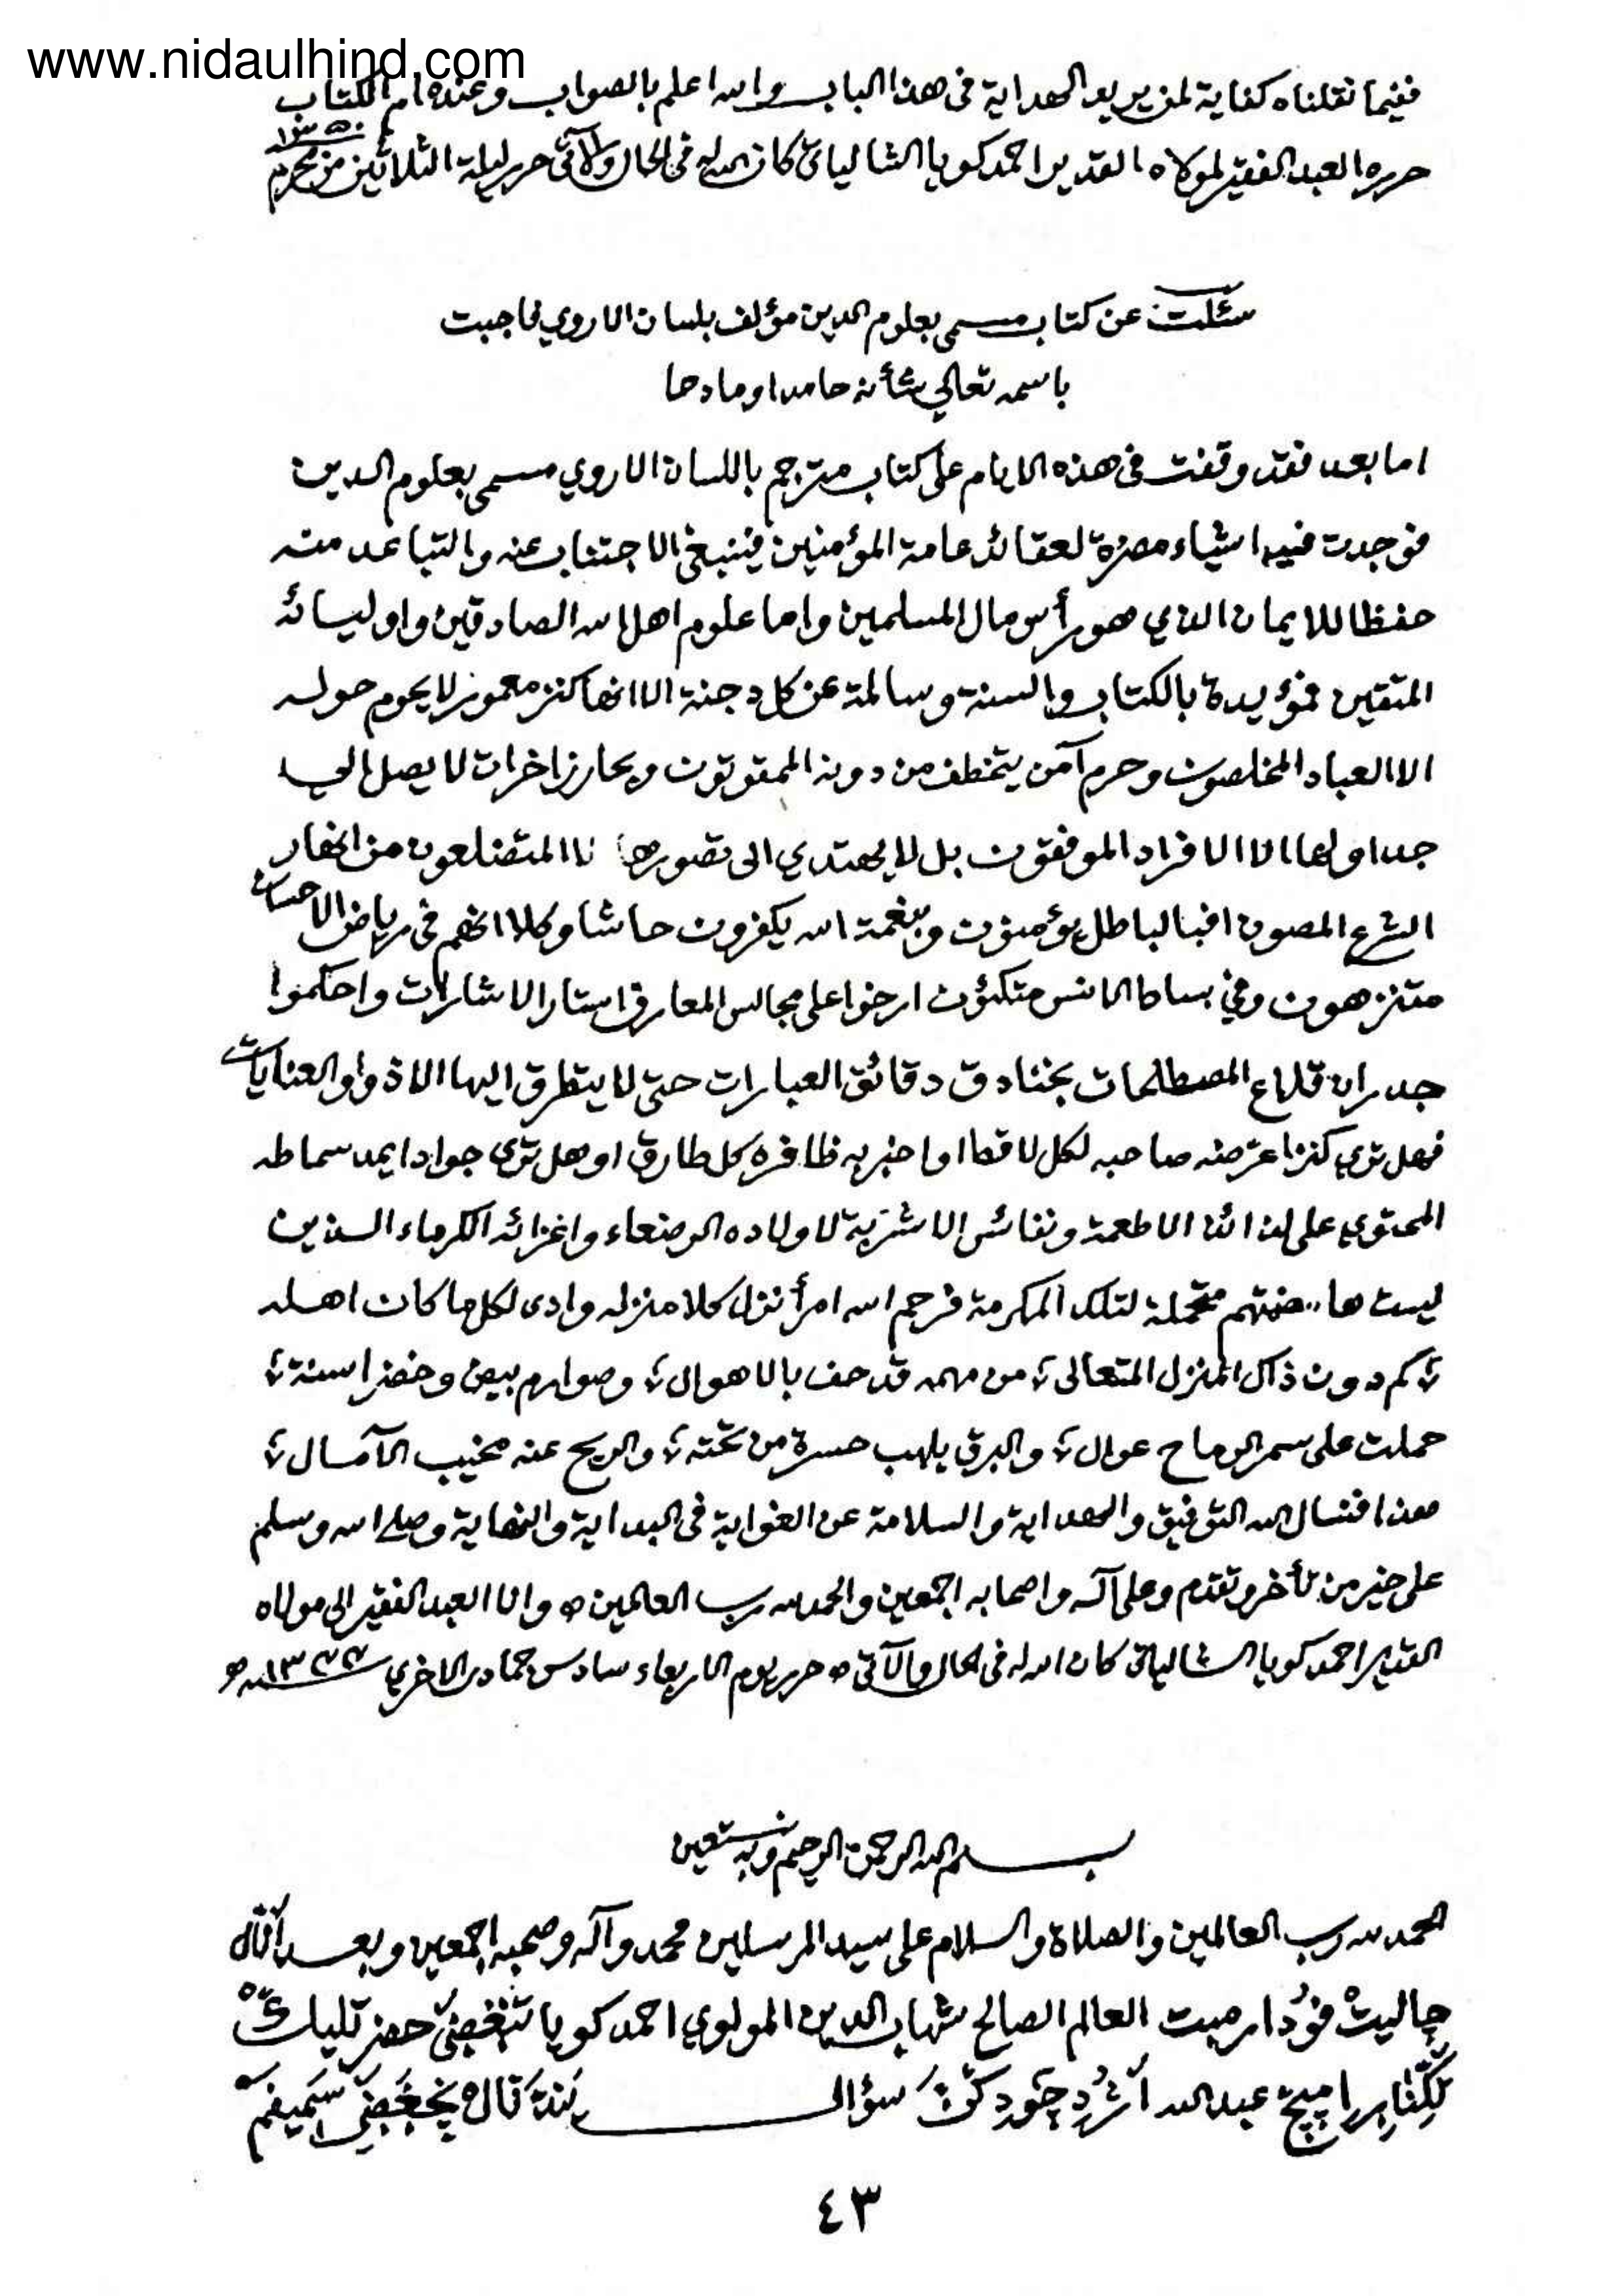 www.nidaulhind.com
ففيما نقلناه كفاية لمن يريد الهداية فى هذا الباب والله اعلم بالصواب وعنده ام الكتاب
حرره العبد الفقير لمولاه القدير احمد كويا الشالياتي كان الله له فى الحال والآتى حرر ليلة الثلاثين من محرم
سئلت عن كتاب مسمى بعلوم الدين مؤلف بلسان الاروي فاجبت
باسمه تعالي شأنه حامدا ومادحا
اما بعد فقد وقفت فى هذه الايام على كتاب مترجم باللسان الاروي مسمى بعلوم الدين
فوجدت فيه اشياء مضرة لعقائد عامة المؤمنين فينبغى الاجتناب عنه والتباعد منه
حفظا للايمان الذي هو رأس مال المسلمين واما علوم اهل الله الصادقين واوليائه
المتقين فمؤيدة بالكتاب والسنة وسالمة عن كل دجنة الا انها كنز معموز لا يحوم حوله
الا العباد المخلصون وحرم آمن يتخطف من دونه الممقوتون وبحار زاخرات لا يصل الي
جداولها الا الافراد الموفقون بل لا يهتدي الى تصورها الا المتضلعون من انهار
الشرع المصون افبالباطل يؤمنون وبنعمة الله يكفرون حاشا وكلا انهم فى رياض الاحسان
متنزهون وفي بساط الانس متكئون ارخوا على مجالس المعارف استار الاشارات واحكموا
جدران قلاع المصطلحات بخنادق دقائق العبارات حتى لا يتطرق اليها الا ذووا العنايات
فهل تري كنزا عرضه صاحبه لكل لاقط او اخبر به ظافره كل طارق او هل تري جوادا يمد سماطه
المحتوي على لذائذ الاطعمة ونفائس الاشربة لاولاده الرضعاء واعزائه الكرماء الذين
ليست هاضمتهم متحملة لتلك المكرمة فرحم الله امرأ نزل كلا منزله وادى لكل ما كان اهله
؛ كم دون ذاك المنزل المتعالى ؛ من مهمه قد حف بالاهوال ؛ وصوارم بيض وخضر اسنة ؛
حملت على سمر الرماح عوال ؛ والبرق يلهب حسرة من تحته ؛ والريح عنه مخيب الآمال ؛
هذا فنسال الله التوفيق والهداية والسلامة عن الغواية فى البداية والنهاية وصلى الله وسلم
على خير من تأخر وتقدم وعلى آله واصحابه اجمعين والحمد لله رب العالمين ه وانا العبد الفقير الى مولاه
القدير احمد كويا الشالياتى كان الله له فى الحال والآتى ه حرر يوم الاربعاء سادس جمادى الاخري
بسم الله الرحمن الرحيم وبه نستعين
الحمد لله رب العالمين والصلاة والسلام على سيد المرسلين محمد وآله وصحبه اجمعين وبعد
العالم الصالح شهاب الدين المولوي احمد كويا
عبد الله سؤال
٤٣